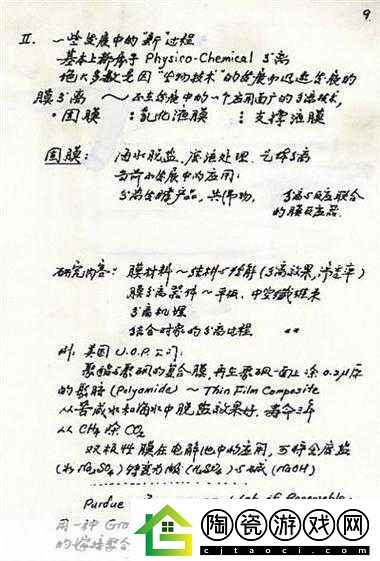 9.
II. 一些发展中的"新"过程
基本上都属于 Physico-Chemical 分离
绝大多数是因"生物技术"的发展而迅速发展的
膜分离 ~ 正在发展中的一个应用面广的分离技术,
·固膜 :乳化液膜 :支撑液膜
固膜: 海水脱盐、废液处理、气体分离
当前的发展中的应用:
分离发酵产品,共沸物, 分离与反应联合
的膜反应器.
研究内容: 膜材料~结构与性能(分离效果,渗透率)
膜分离器件~平板、中空纤维束
分离机理
结合对象的分离过程
例, 美国 U.O.P. 公司:
聚酰与聚砜的复合膜,再在聚砜一面上涂0.2μ厚
的聚胺 (Polyamide) ~ Thin Film Composite
从苦咸水和海水中脱盐效果好, 寿命三年
从 CH4 除 CO2
双极性膜在电解池中的应用, 可将金属盐
(如 Na2SO4) 转变为酸 (H2SO4) 与碱 (NaOH)
Purdue
用一种 Gra
的嫁接聚合
陶瓷游戏网
cjtaoci.com